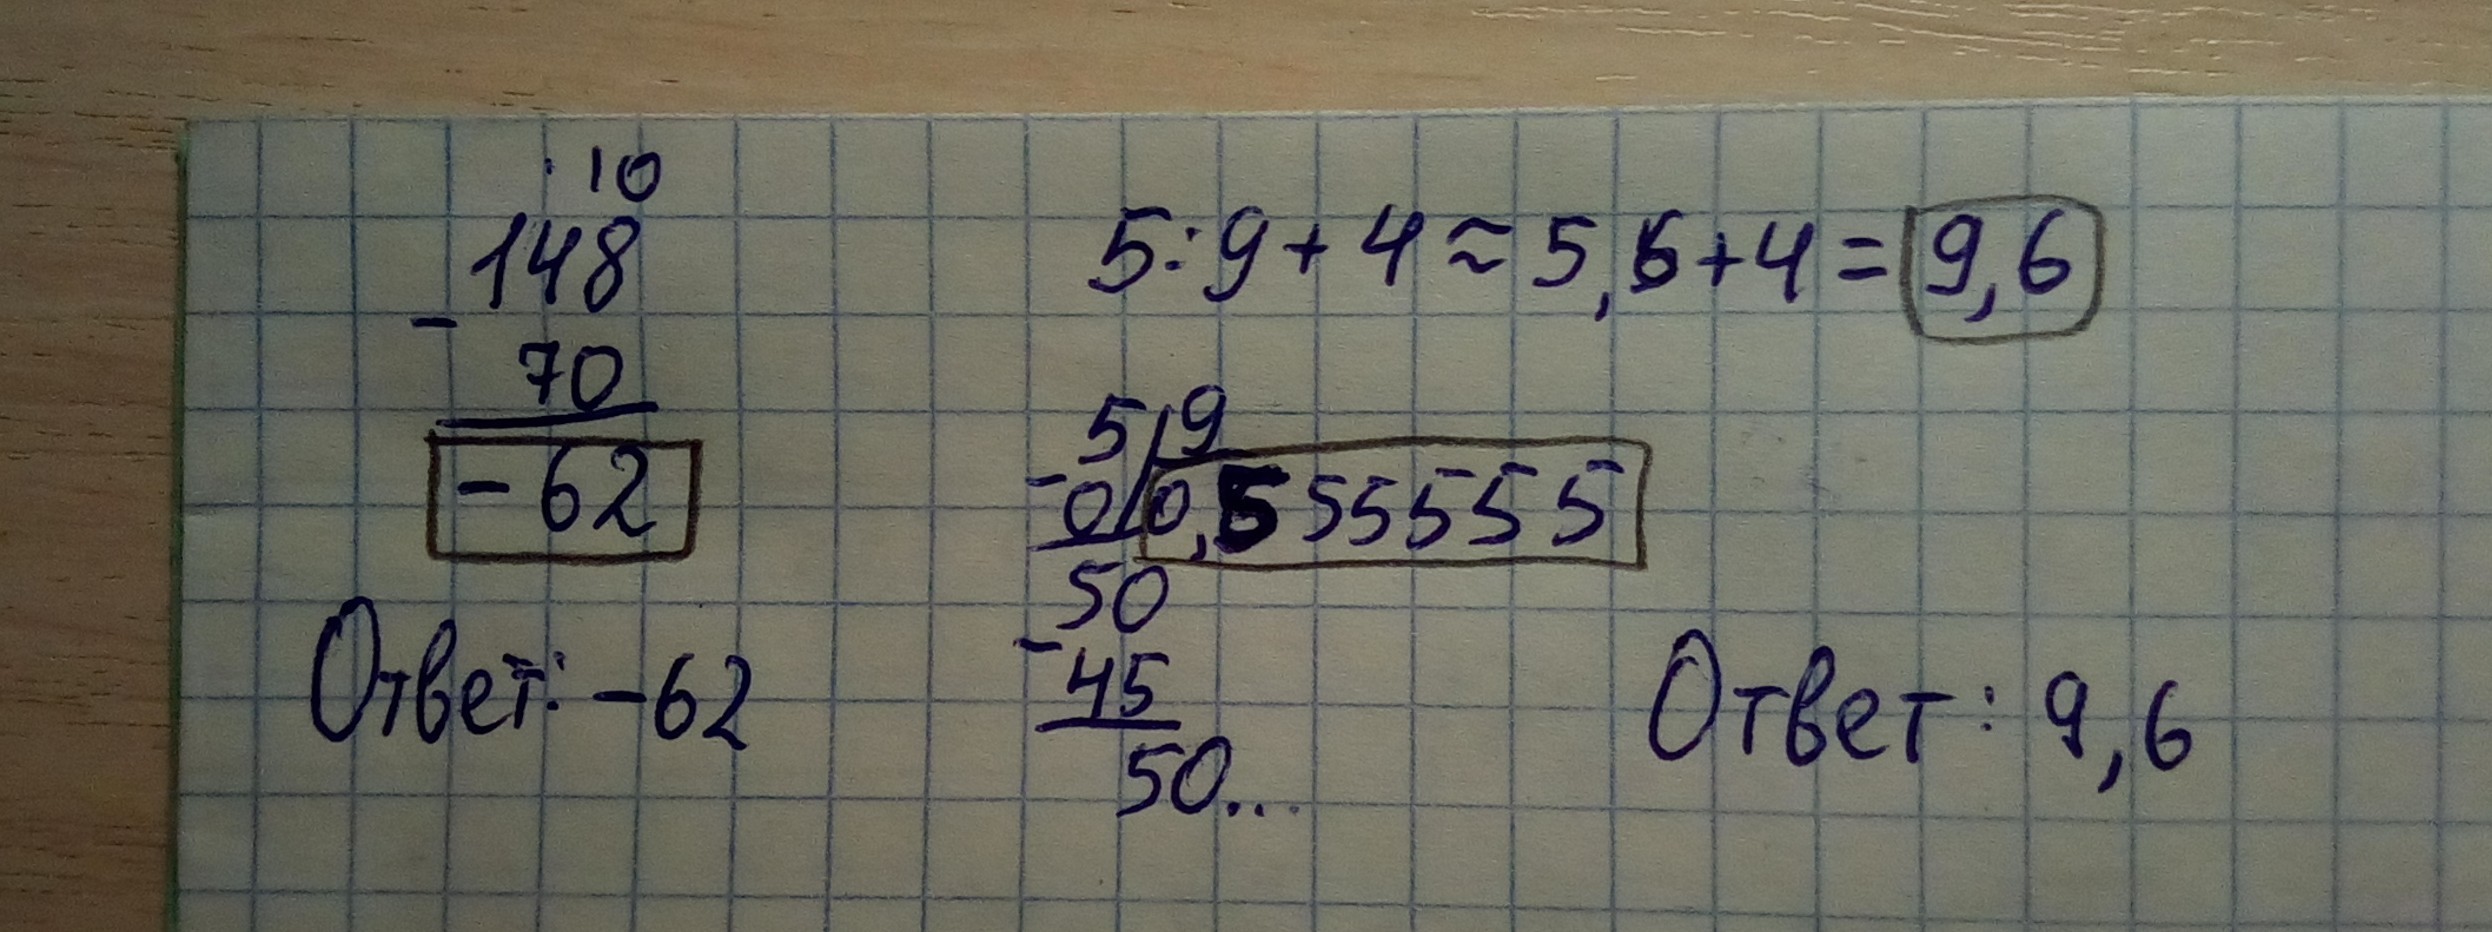 · 10
148
-
70
-62
Ответ: -62
5:9+4≈5,6+4=9,6
5 9
-
0 0,555555
50
-
45
50...
Ответ: 9,6